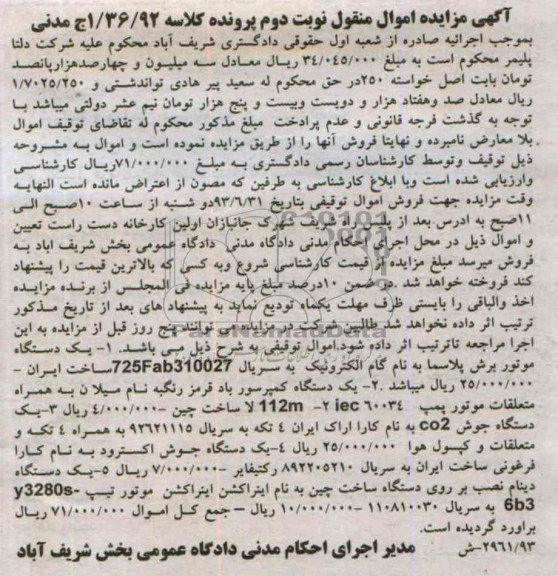 آگهی مزایده اموال منقول نوبت دوم پرونده کلاسه ۱/۳۶/۹۲ج مدنی
بموجب اجرائیه صادره از شعبه اول حقوقی دادگستری شریف آباد محکوم علیه شرکت دلتا
پلیمر محکوم است به مبلغ ۳۴/۰۴۵/۰۰۰ ریال معادل سه میلیون و چهارصدهزارپانصد
تومان بابت اصل خواسته ۲۵۰در حق محکوم له سعید پیر هادی تواندشتی و ۱/۷۰۲۵/۲۵۰
ریال معادل صد وهفتاد هزار و دویست وبیست و پنج هزار تومان نیم عشر دولتی میباشد با
توجه به گذشت فرجه قانونی و عدم پرادخت مبلغ مذکور محکوم له تقاضای توقیف اموال
بلا معارض نامبرده و نهایتا فروش آنها را از طریق مزایده نموده است و اموال به مشروحه
ذیل توقیف وتوسط کارشناسان رسمی دادگستری به مبلغ ۷۱/۰۰۰/۰۰۰ریال کارشناسی
وارزیابی شده است وبا ابلاغ کارشناسی به طرفین که مصون از اعتراض مانده است النهایه
وقت مزایده جهت فروش اموال توقیفی بتاریخ ۹۳/۶/۳۱دو شنبه از ساعت ۱۰صبح الی
۱۱صبح به ادرس بعد از پلیس راه شریف شهرک جانبازان اولین کارخانه دست راست تعیین
و اموال ذیل در محل اجرای احکام مدنی دادگاه مدنی دادگاه عمومی بخش شریف اباد به
فروش میرسد مبلغ مزایده از قیمت کارشناسی شروع وبه کسی که بالاترین قیمت را پیشنهاد
کند فروخته خواهد شد .در ضمن ۱۰درصد مبلغ پایه مزایده فی المجلس از برنده مزایده
اخذ والباقی را بایستی ظرف مهلت یکماه تودیع نماید به پیشنهاد های بعد از تاریخ مذکور
ترتیب اثر داده نخواهد شد.طالبین شرکت در مزایده می توانند پنج روز قبل از مزایده به این
اجرا مراجعه تاترتیب اثر داده شود.اموال توقیفی به شرح ذیل می باشد. ۱- یک دستگاه
موتور برش پلاسما به نام گام الکترونیک به سریال 725Fab310027ساخت ایران –
۲۵/۰۰۰/۰۰۰ ریال میباشد .۲- یک دستگاه کمپرسور باد قرمز رنگبه نام میلان به همراه
متعلقات موتور پمپ iec ۶۰۰۳۴ ۲- 112m لا ساخت چین -۴/۰۰۰/۰۰۰ ریال ۳-یک
دستگاه جوش co2 به نام کارا اراک ایران ۴ تکه به سریال ۹۲۶۲۱۱۱۵ به همراه ۴ تکه و
متعلقات و کپسول هوا ۲۵/۰۰۰/۰۰۰ ریال ۴-یک دستگاه جوش اکسترود به نام کارا
فرغونی ساخت ایران به سریال ۸۹۲۲۰۵۲۱۰ رکتیفایر -۷/۰۰۰/۰۰۰ ریال ۵-یک دستگاه
دینام نصب بر روی دستگاه ساخت چین به نام ایتراکشن ایتراکشن موتور تیپ y3280s-
6b3 به سریال ۱۱۰۸۱۰۰۳۰ -۱۰/۰۰۰/۰۰۰ ریال – جمع کل اموال ۷۱/۰۰۰/۰۰۰ ریال
براورد گردیده است.
۲۹۶۱/۹۳-ش مدیر اجرای احکام مدنی دادگاه عمومی بخش شریف آباد